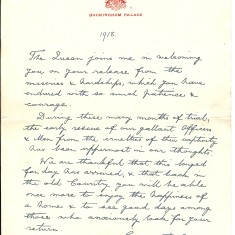 BUCKINGHAM PALACE
1918.
The Queen joins me in welcoming
you on your release from the
miseries & hardships, which you have
endured with so much patience &
courage.
During these many months of trial,
the early rescue of our gallant Officers
& Men from the cruelties of their captivity
has been uppermost in our thoughts.
We are thankful that this longed
for day has arrived, & that back in
the old Country you will be able
once more to enjoy the happiness of
a home & to see good days among
those who anxiously look for your
return.